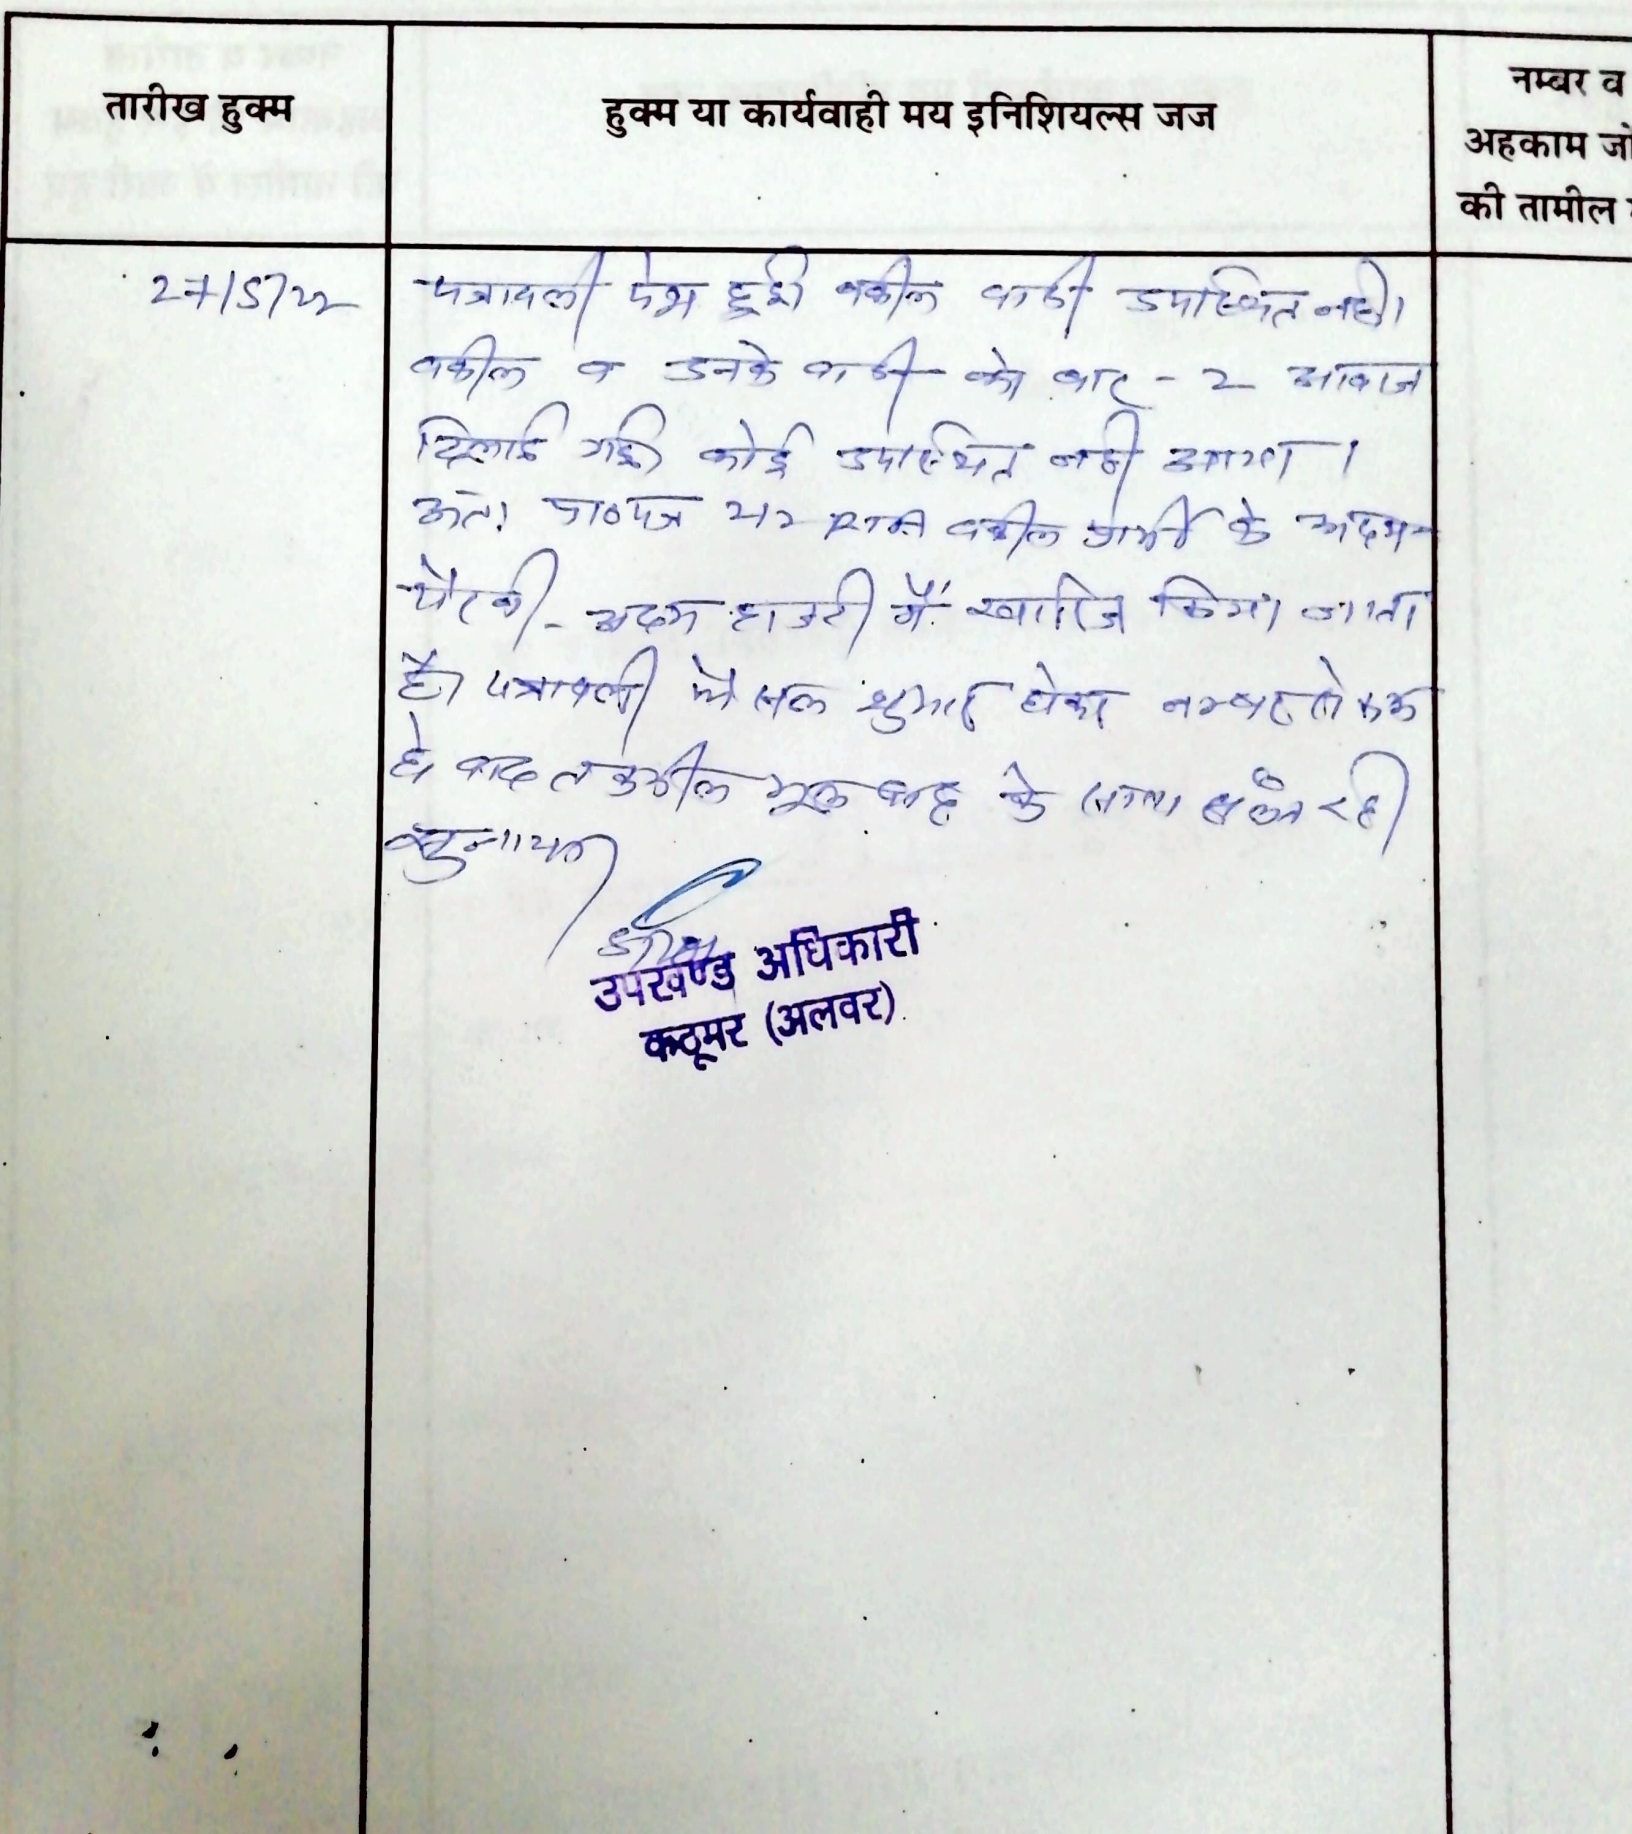 तारीख हुक्म
हुक्म या कार्यवाही मय इनिशियल्स जज
नम्बर व
अहकाम जो
की तामील
27/5/22
पत्रावली पेश हुई। वकील वादी उपस्थित नही।
वकील व उनके वादी को बार-2 आवाज
दिलाई गई। कोई उपस्थित नही आया।
अतः प्रा०पत्र वकील प्रार्थी के अदम-
पैरवी-अदम हाजरी में खारिज किया जाता
है। पत्रावली फैसल शुमार होकर नम्बर से कम
हो बाद तकमील मूल वाद के साथ रहे।
सुनाया
उपखण्ड अधिकारी
कठूमर (अलवर)